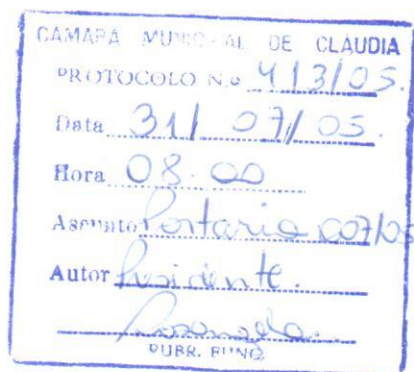 CÂMARA MUNICIPAL DE CLÁUDIA
PROTOCOLO N.º 413/05.
Data 31/ 07/ 05.
Hora 08:00
Assunto Portaria 007/05
Autor Presidente.
Rosangela.
RUBR. FUNC.